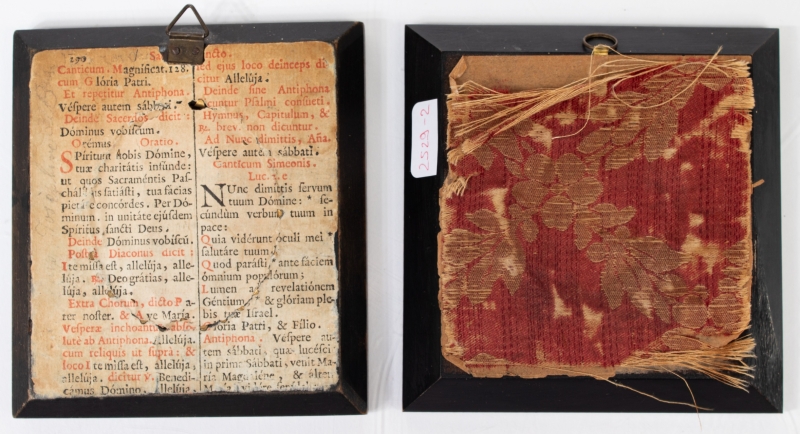 290
Sa
Canticum. Magnificat. 128.
cum Glória Patri.
Et repetitur Antiphona.
Véspere autem sábbati.
Deinde Sacerdos dicit:
Dóminus vobiscum.
Orémus Oratio.
Spíritum nobis Dómine,
tuæ charitátis infúnde:
ut quos Sacraméntis Pas-
chálibus satiásti, tua fácias
pietáte concórdes. Per Dó-
minum. in unitáte ejúsdem
Spíritus sancti Deus.
Deinde Dóminus vobiscũ.
Postea Diaconus dicit:
Ite missa est, allelúja, alle-
lúja. ℟. Deo grátias, alle-
lúja, allelúja.
Extra Chorum, dicto Pa-
ter noster. & Ave María.
Vesperæ inchoantur abso-
lutè ab Antiphona. Allelúja.
cum reliquis ut supra: &
loco Ite missa est, allelúja,
allelúja. dicitur ℣. Benedi-
cámus Dómino. Allelúja.
ncto.
sed ejus loco deinceps di-
citur Allelúja.
Deinde sine Antiphona
dicuntur Psalmi consueti.
Hymnus, Capitulum, &
℟. brev. non dicuntur.
Ad Nunc dimittis, Aña.
Véspere autem sábbati.
Canticum Simeonis.
Luc. 2. e
NUnc dimíttis servum
tuum Dómine: * se-
cúndum verbum tuum in
pace:
Quia vidérunt óculi mei *
salutáre tuum;
Quod parásti, * ante fáciem
ómnium populórum;
Lumen ad revelatiónem
Géntium, * & glóriam ple-
bis tuæ Israel.
Glória Patri, & Fílio.
Antiphona. Véspere au-
tem sábbati, quæ lucéscit
in prima Sábbati, venit Ma-
ría Magdaléne, & áltera
2529-2